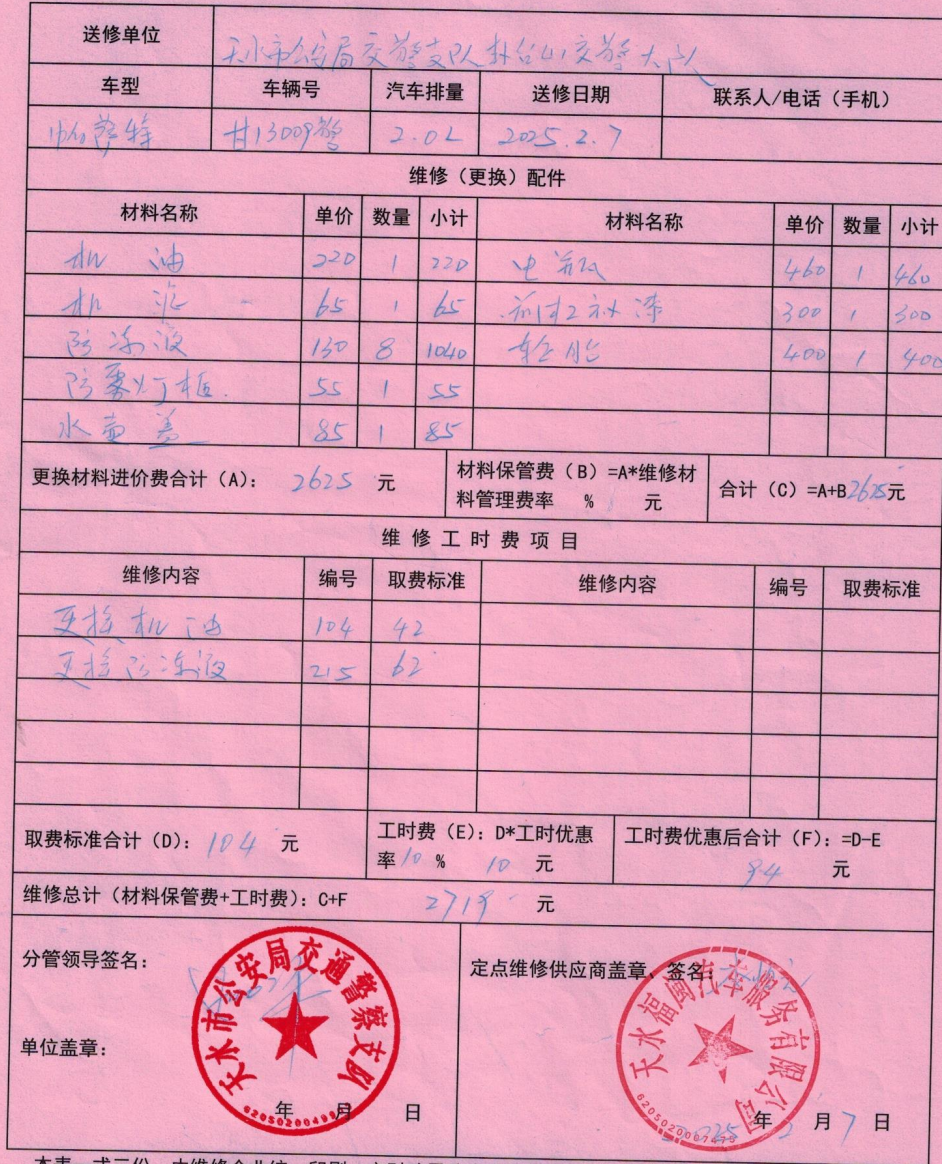 送修单位 天水市公安局交警支队卦台山交警大队
车型 车辆号 汽车排量 送修日期 联系人/电话（手机）
帕萨特 甘13009警 2.0L 2025.2.7
维修（更换）配件
材料名称 单价 数量 小计 材料名称 单价 数量 小计
机油 220 1 220 电瓶 460 1 460
机滤 65 1 65 前杠补漆 300 1 300
防冻液 130 8 1040 轮胎 400 1 400
防雾灯框 55 1 55
水壶盖 85 1 85
更换材料进价费合计（A）： 2625 元 材料保管费（B）=A*维修材料管理费率 % 元 合计（C）=A+B 2625元
维修工时费项目
维修内容 编号 取费标准 维修内容 编号 取费标准
更换机油 104 42
更换防冻液 215 62
取费标准合计（D）： 104 元 工时费（E）：D*工时优惠率 10 % 10 元 工时费优惠后合计（F）：=D-E 94 元
维修总计（材料保管费+工时费）：C+F 2719 元
分管领导签名： 定点维修供应商盖章、签名：
天水市公安局交通警察支队
天水福闽汽车服务有限公司
单位盖章：
年 月 日 2025 年 2 月 7 日